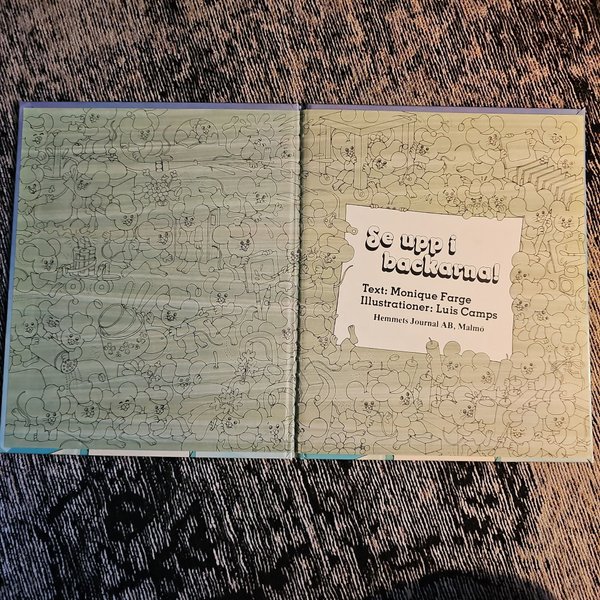 Se upp i
backarna!
Text: Monique Farge
Illustrationer: Luis Camps
Hemmets Journal AB, Malmö